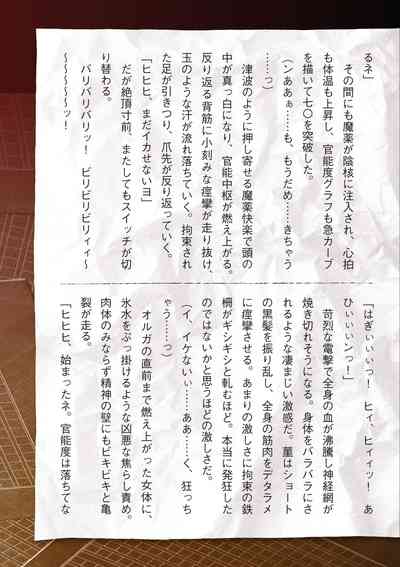 るネ」
　その間にも魔薬が陰核に注入され、心拍
も体温も上昇し、官能度グラフも急カーブ
を描いて七〇を突破した。
（ンああぁ……も、もうだめ……きちゃう
……っ）
　津波のように押し寄せる魔薬快楽で頭の
中が真っ白になり、官能中枢が燃え上がる。
反り返る背筋に小刻みな痙攣が走り抜け、
玉のような汗が流れ落ちていく。拘束され
た足が引きつり、爪先が反り返っていく。
「ヒヒヒ、まだイカせないヨ」
　だが絶頂寸前、またしてもスイッチが切
り替わる。
　バリバリバリッ！　ビリビリビリィィ～
～～～～～ッ！
「はぎぃぃぃっ！　ヒィ、ヒィィッ！　あ
ひぃぃぃンっ！」
　苛烈な電撃で全身の血が沸騰し神経網が
焼き切れそうになる。身体をバラバラにさ
れるような凄まじい激感だ。菫はショート
の黒髪を振り乱し、全身の筋肉をデタラメ
に痙攣させる。あまりの激しさに拘束の鉄
柵がギシギシと軋むほど。本当に発狂した
のではないかと思うほどの激しさだ。
（イ、イケないぃ……ああ……く、狂っち
ゃう……っ）
　オルガの直前まで燃え上がった女体に、
氷水をぶっ掛けるような凶悪な焦らし責め。
肉体のみならず精神の壁にもビキビキと亀
裂が走る。
「ヒヒヒ、始まったネ。官能度は落ちてな